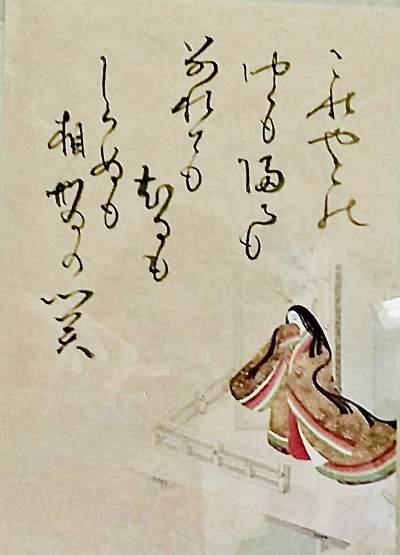 これやこの
ゆくも帰るも
別れても
知るも
しらぬも
相坂の関